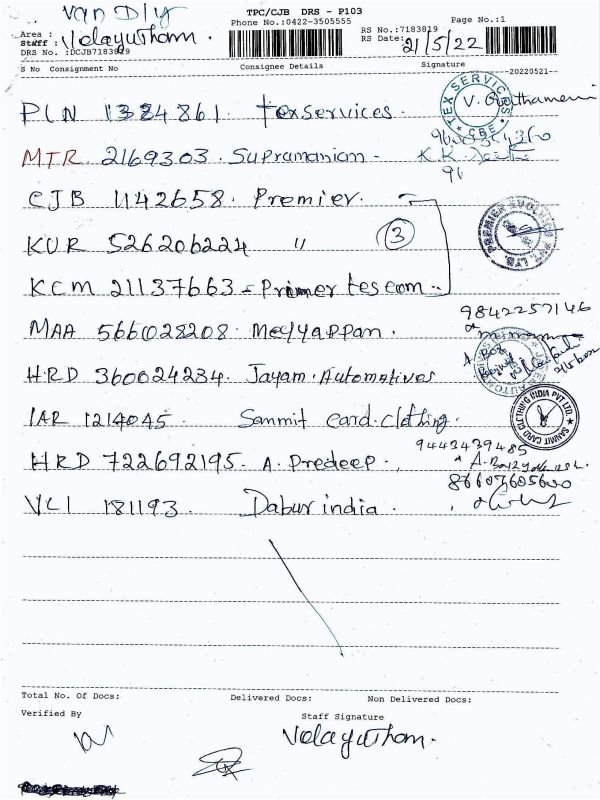 Van Dly
TPC/CJB DRS - P103
Phone No.:0422-3505555
Page No.:1
Area :
Staff : Velayutham.
RS No.:7183819
DRS No. :DCJB7183819
RS Date: 21/5/22
S No Consignment No Consignee Details Signature
--20220521--
PLN 1384861. texservices.
TEX SERVICES CBE
MTR 2169303. Supramaniam -
96
CJB 1142658. Premier.
KUR 526206224 "
3
KCM 21137663 - Primer tescom.
9842257146
MAA 566028208. Meyyappan.
HRD 360024234. Jayam. Automatives
IAR 1214045 Sammit card. clothing.
SAMMIT CARD CLOTHING INDIA PVT LTD
HRD 722692195. A. Predeep.
9442439485
VLI 181193 Dabur india.
Total No. Of Docs: Delivered Docs: Non Delivered Docs:
Verified By
Staff Signature
Velayutham.